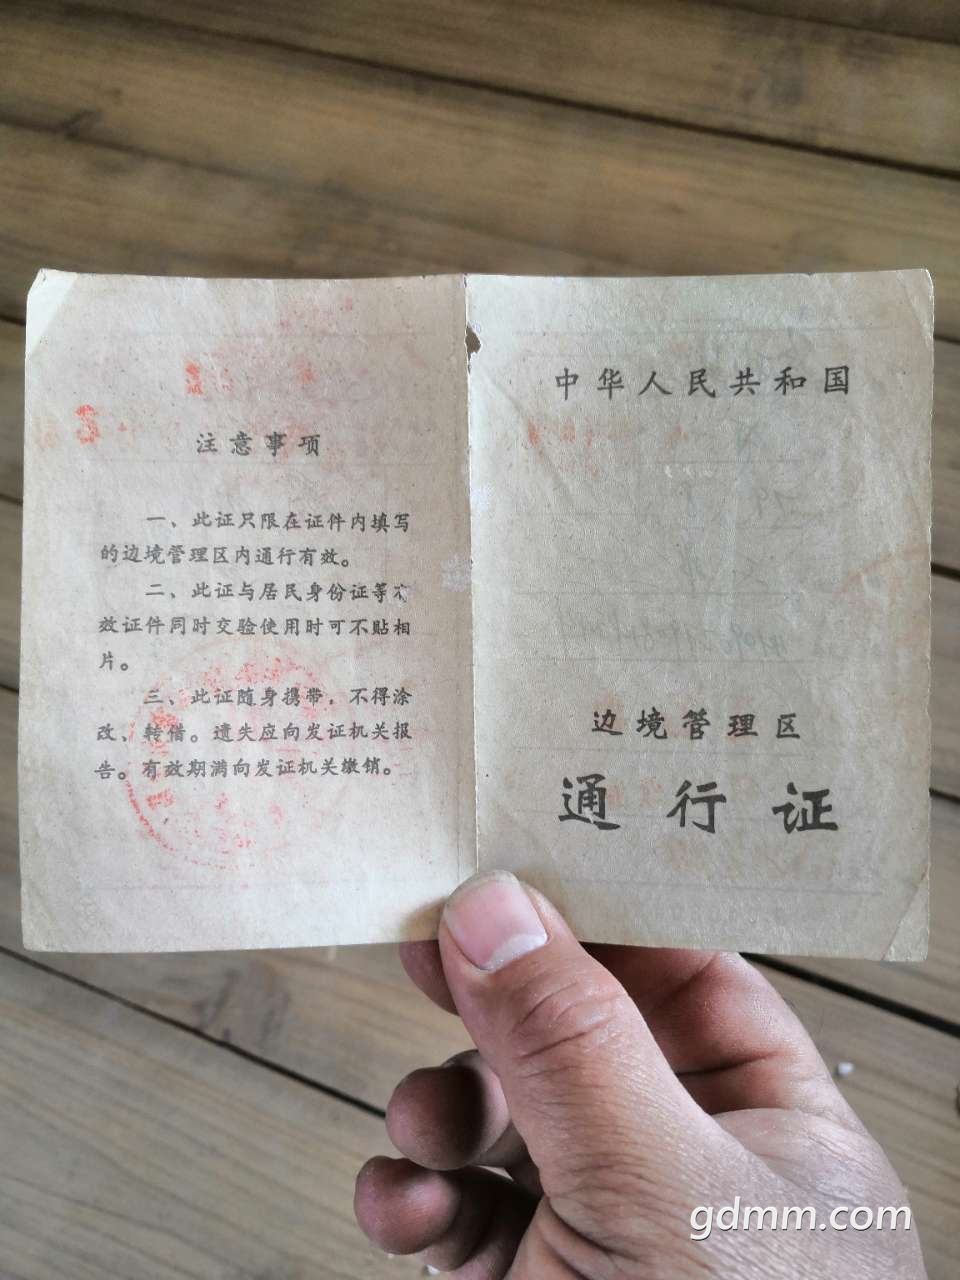 注意事项
一、此证只限在证件内填写
的边境管理区内通行有效。
二、此证与居民身份证等有
效证件同时交验使用时可不贴相
片。
三、此证随身携带，不得涂
改、转借。遗失应向发证机关报
告。有效期满向发证机关缴销。
中华人民共和国
边境管理区
通行证
gdmm.com